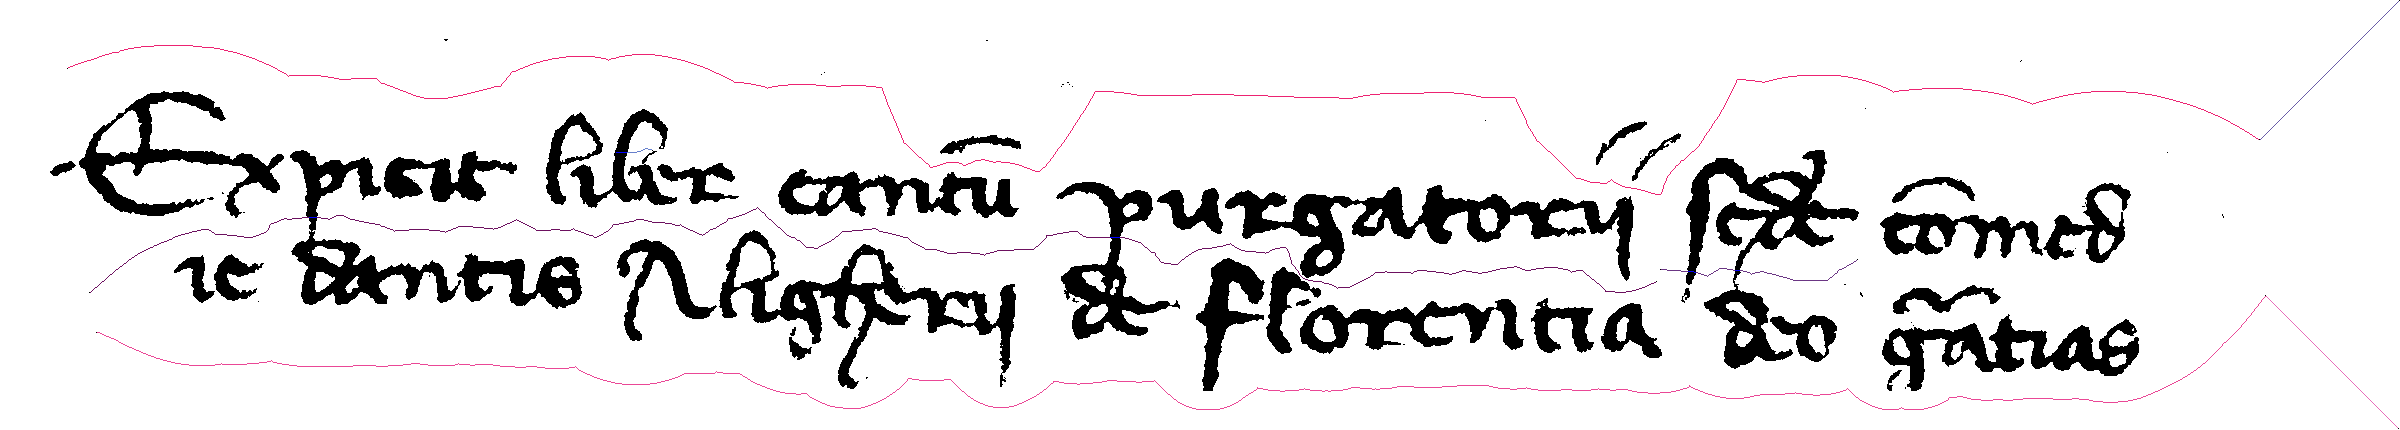 Expicit liber cantū purgatorii scde comed
ie dantis Aligherii de florentia deo gr̄atias